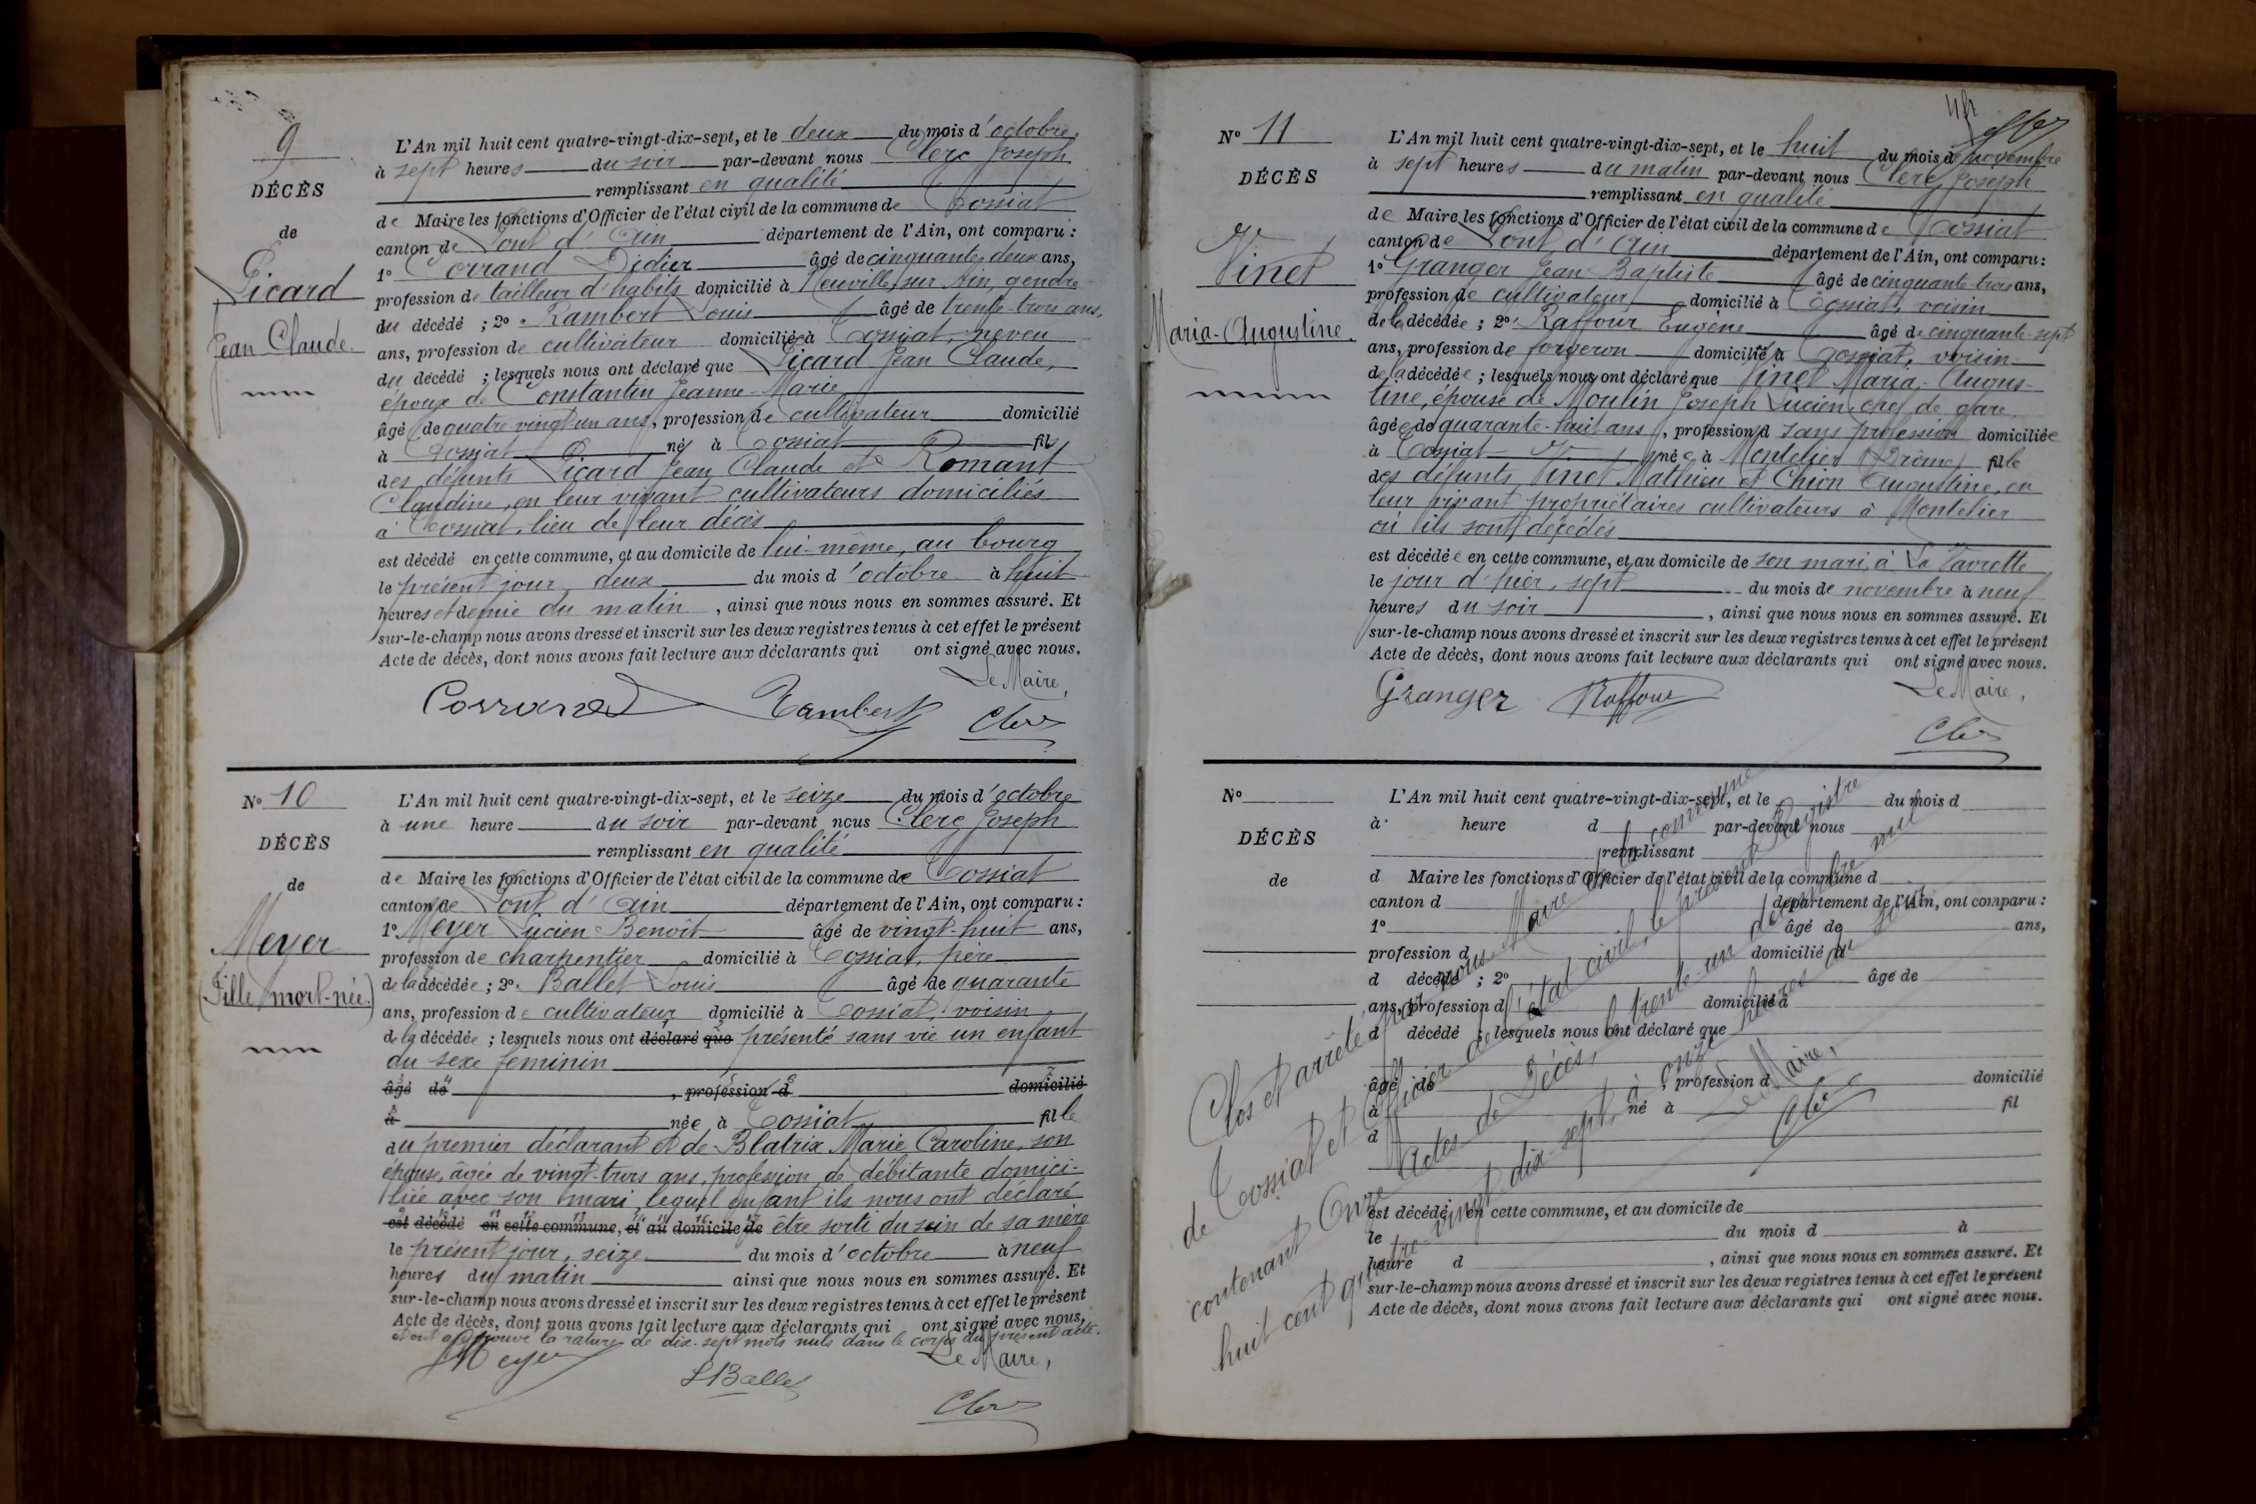 9
DÉCÈS
de
Picard
Jean Claude
L'An mil huit cent quatre-vingt-dix-sept, et le deux du mois d'octobre
à sept heures du soir par-devant nous Clerc Joseph
remplissant en qualité
de Maire les fonctions d'Officier de l'état civil de la commune de Tossiat
canton de Pont d'Ain département de l'Ain, ont comparu :
1° Corrand Didier âgé de cinquante deux ans,
profession de tailleur d'habits domicilié à Neuville sur Ain, gendre
du décédé ; 2° Rambert Louis âgé de trente-trois ans,
ans, profession de cultivateur domicilié à Tossiat, neveu
du décédé ; lesquels nous ont déclaré que Picard Jean Claude,
époux de Constantin Jeanne-Marie
âgé de quatre vingt un ans, profession de cultivateur domicilié
à Tossiat né à Tossiat fils
des défunts Picard Jean Claude et Romant
Claudine, en leur vivant cultivateurs domiciliés
à Tossiat, lieu de leur décès
est décédé en cette commune, et au domicile de lui-même, au bourg
le présent jour deux du mois d'octobre à huit
heures et demie du matin, ainsi que nous nous en sommes assuré. Et
sur-le-champ nous avons dressé et inscrit sur les deux registres tenus à cet effet le présent
Acte de décès, dont nous avons fait lecture aux déclarants qui ont signé avec nous.
Le Maire,
Corrand Rambert Clerc
N° 10
DÉCÈS
de
Meyer
(Fille mort-née.)
L'An mil huit cent quatre-vingt-dix-sept, et le seize du mois d'octobre
à une heure du soir par-devant nous Clerc Joseph
remplissant en qualité
de Maire les fonctions d'Officier de l'état civil de la commune de Tossiat
canton de Pont d'Ain département de l'Ain, ont comparu :
1° Meyer Lucien Benoît âgé de vingt-huit ans,
profession de charpentier domicilié à Tossiat, père
de la décédée ; 2° Ballet Louis âgé de quarante
ans, profession de cultivateur domicilié à Tossiat, voisin
de la décédée ; lesquels nous ont déclaré que présenté sans vie un enfant
du sexe feminin
âgé de , profession d domicilié
à née à Tossiat fille
du premier déclarant et de Blatrix Marie Caroline, son
épouse, âgée de vingt-trois ans, profession de débitante domici-
liée avec son mari, lequel enfant ils nous ont déclaré
est décédé en cette commune, et au domicile de être sorti du sein de sa mère
le présent jour, seize du mois d'octobre à neuf
heures du matin ainsi que nous nous en sommes assuré. Et
sur-le-champ nous avons dressé et inscrit sur les deux registres tenus à cet effet le présent
Acte de décès, dont nous avons fait lecture aux déclarants qui ont signé avec nous,
et ont approuvé la rature de dix-sept mots nuls dans le corps du présent acte.
Le Maire,
Meyer
LBallet
Clerc
N° 11
DÉCÈS
de
Vinet
Maria-Augustine.
L'An mil huit cent quatre-vingt-dix-sept, et le huit du mois de novembre
à sept heures du matin par-devant nous Clerc Joseph
remplissant en qualité
de Maire les fonctions d'Officier de l'état civil de la commune de Tossiat
canton de Pont d'Ain département de l'Ain, ont comparu :
1° Granger Jean-Baptiste âgé de cinquante trois ans,
profession de cultivateur domicilié à Tossiat, voisin
de la décédée ; 2° Raffour Eugène âgé de cinquante-sept
ans, profession de forgeron domicilié à Tossiat, voisin
de la décédée ; lesquels nous ont déclaré que Vinet Maria-Augus-
tine, épouse de Moulin Joseph Lucien, chef de gare
âgée de quarante-huit ans, profession d sans profession domiciliée
à Tossiat née à Montelier (Drôme) fille
des défunts Vinet Mathieu et Chion Augustine, en
leur vivant propriétaires cultivateurs à Montelier
où ils sont décédés
est décédée en cette commune, et au domicile de son mari, à La Vavrette
le jour d'hier, sept du mois de novembre à neuf
heures du soir, ainsi que nous nous en sommes assuré. Et
sur-le-champ nous avons dressé et inscrit sur les deux registres tenus à cet effet le présent
Acte de décès, dont nous avons fait lecture aux déclarants qui ont signé avec nous.
Le Maire,
Granger Raffour
Clerc
N°
DÉCÈS
de
L'An mil huit cent quatre-vingt-dix-sept, et le du mois d
à heure d par-devant nous
remplissant
d Maire les fonctions d'Officier de l'état civil de la commune d
canton d département de l'Ain, ont comparu :
1° âgé de ans,
profession d domicilié à
d décédé ; 2° âgé de
ans, profession d domicilié à
d décédé ; lesquels nous ont déclaré que
âgé de , profession d domicilié
à né à fil
d
est décédé en cette commune, et au domicile de
le du mois d à
heure d , ainsi que nous nous en sommes assuré. Et
sur-le-champ nous avons dressé et inscrit sur les deux registres tenus à cet effet le présent
Acte de décès, dont nous avons fait lecture aux déclarants qui ont signé avec nous.
Clos et arrêté par nous Maire de la commune
de Tossiat et Officier de l'état civil, le présent Registre
contenant Onze Actes de Décès, le trente-un décembre mil
huit cent quatre-vingt dix-sept, à onze heures du soir
Le Maire,
Clerc